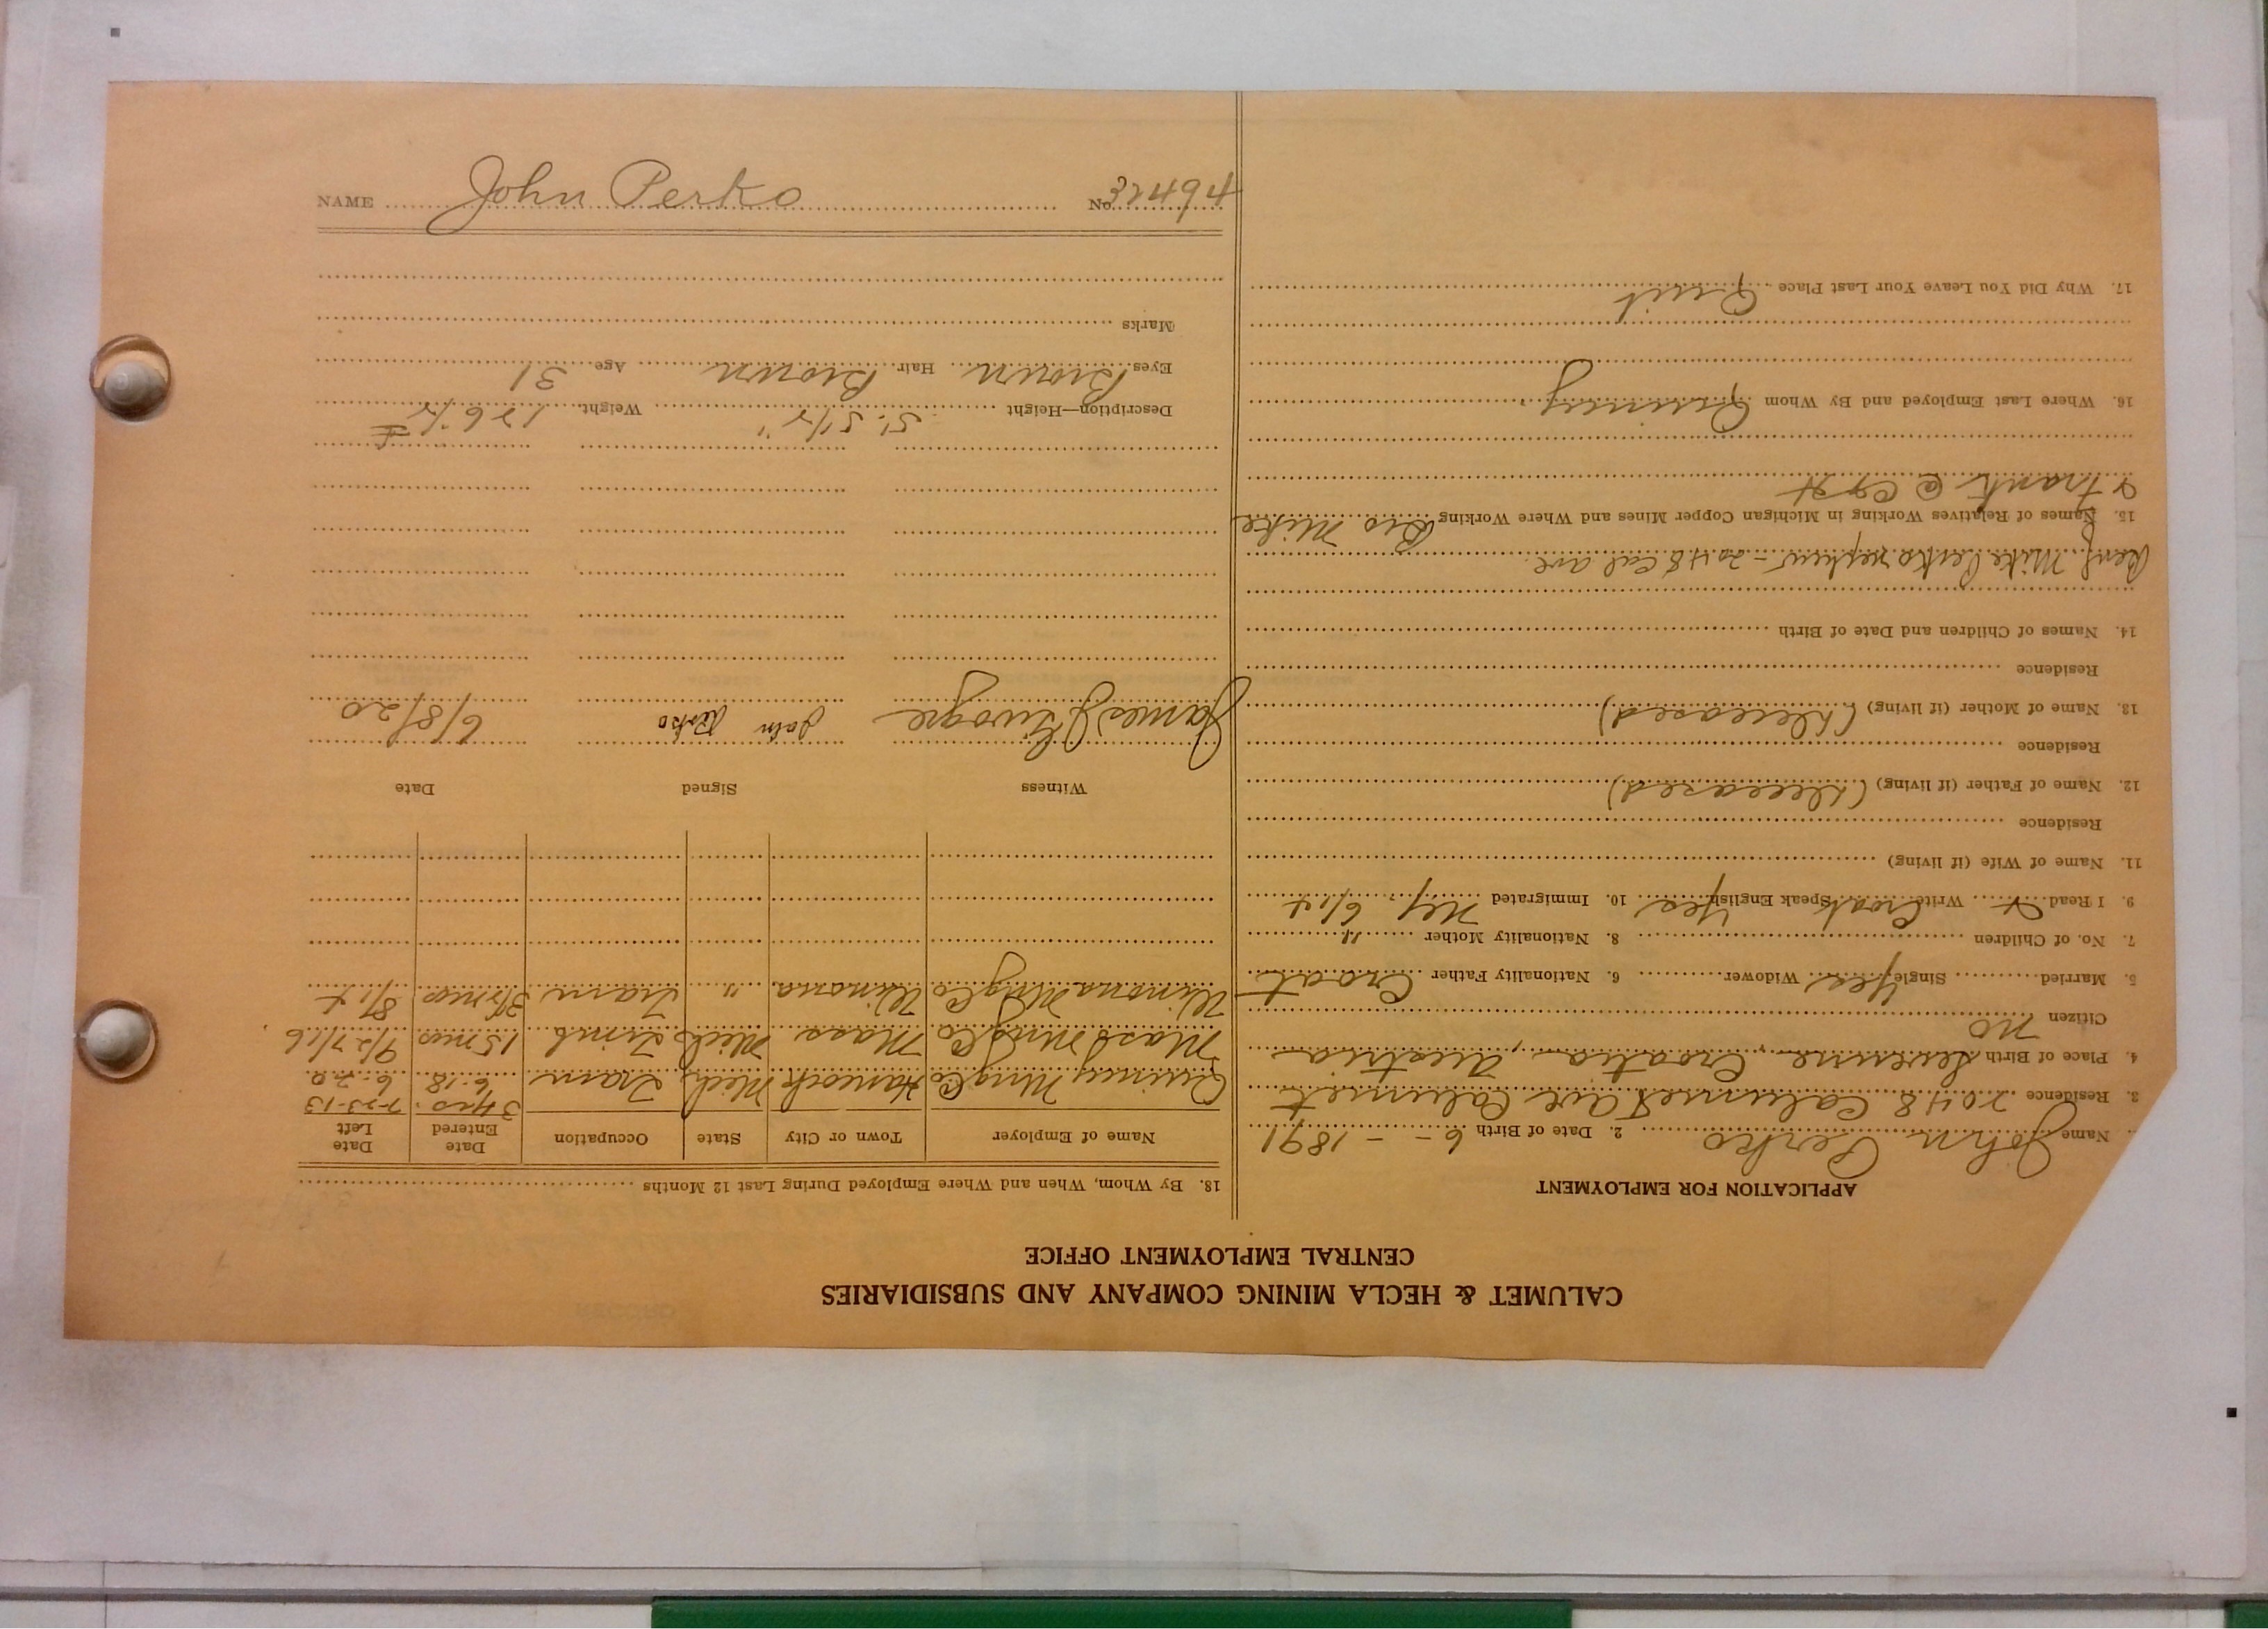 CALUMET & HECLA MINING COMPANY AND SUBSIDIARIES
CENTRAL EMPLOYMENT OFFICE
APPLICATION FOR EMPLOYMENT
Name John Perko 2. Date of Birth 6 - - 1891
3. Residence 2048 Calumet ave Calumet
4. Place of Birth Severne, Croatia, Austria
Citizen no
5. Married Single Yes Widower 6. Nationality Father Croat
7. No. of Children 8. Nationality Mother "
9. I Read & Write Croat Speak English Yes 10. Immigrated 6/12
11. Name of Wife (if living)
Residence
12. Name of Father (if living) (deceased)
Residence
13. Name of Mother (if living) (deceased)
Residence
14. Names of Children and Date of Birth
Mike Perko nephew - 2048 Cal ave.
15. Names of Relatives Working in Michigan Copper Mines and Where Working Bro Mike
& Frank @ C & H
16. Where Last Employed and By Whom Quincy
17. Why Did You Leave Your Last Place Quit
18. By Whom, When and Where Employed During Last 12 Months
Name of Employer Town or City State Occupation Date Entered Date Left
7-23-13
Quincy Mng Co Hancock Mich Tram 6-18 6-20
Mass Mng Co Mass Mich Timb 15 mos 9/27/16
Winona Mng Co Winona " Tram mos
Witness Signed Date
James John Perko 6/8/20
Description—Height 5'. 5 1/2" Weight 126 1/2 #
Eyes Brown Hair Brown Age 31
Marks
NAME John Perko No. 32494